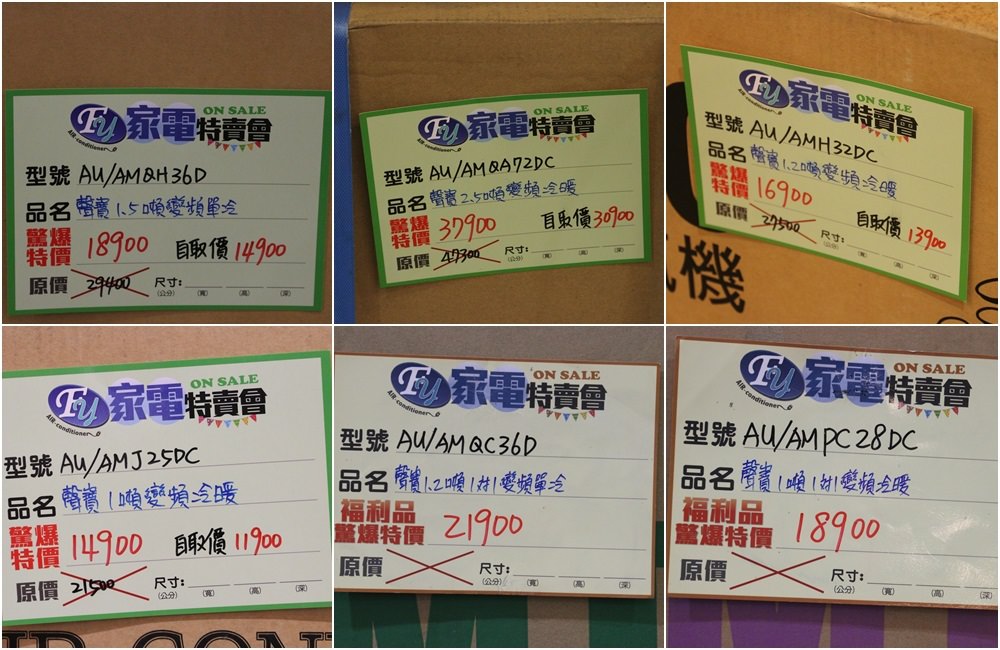 FY 家電特賣會 ON SALE
AIR-conditioner
型號 AU/AMQH36D
品名 聲寶1.5噸變頻單冷
驚爆特價 18900 自取價 14900
原價 29400 尺寸: (公分) (寬) (高) (深)
FY 家電特賣會 ON SALE
AIR-conditioner
型號 AU/AMQA72DC
品名 聲寶2.5噸變頻冷暖
驚爆特價 37900 自取價 30900
原價 47300 尺寸: (公分) (寬) (高) (深)
FY 家電特賣會 ON SALE
AIR-conditioner
型號 AU/AMH32DC
品名 聲寶1.2噸變頻冷暖
驚爆特價 16900
自取價 13900
原價 27500 尺寸: (公分) (寬) (高) (深)
機
FY 家電特賣會 ON SALE
AIR-conditioner
型號 AU/AMJ25DC
品名 聲寶1噸變頻冷暖
驚爆特價 14900 自取價 11900
原價 21500 尺寸: (公分) (寬) (高) (深)
FY 家電特賣會 ON SALE
AIR-conditioner
型號 AU/AMQC36D
品名 聲寶1.2噸1對1變頻單冷
福利品
驚爆特價 21900
原價 尺寸: (公分) (寬) (高) (深)
FY 家電特賣會 ON SALE
AIR-conditioner
型號 AU/AMPC28DC
品名 聲寶1噸1對1變頻冷暖
福利品
驚爆特價 18900
原價 尺寸: (公分) (寬) (高) (深)